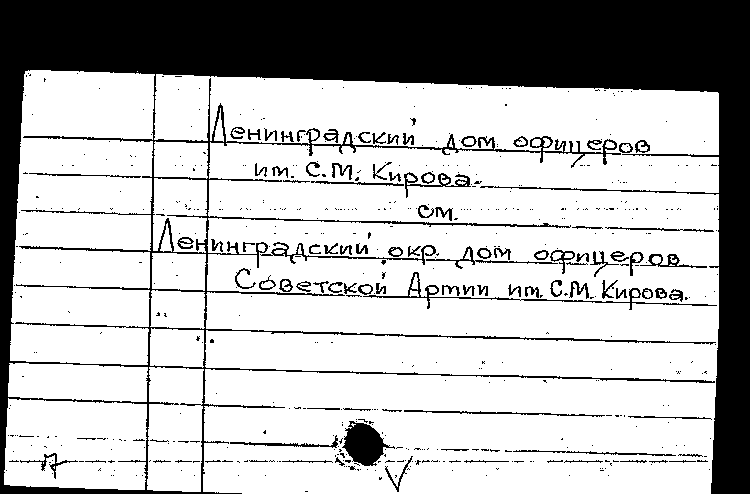 Ленинградский дом офицеров
им. С.М. Кирова.
см.
Ленинградский окр. дом офицеров
Советской Армии им. С.М. Кирова.